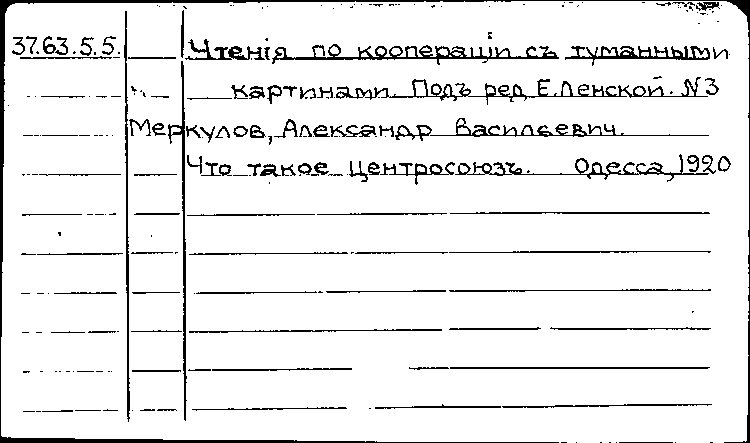 37.63.5.5. Чтенія по коопераціи съ туманными
картинами. Подъ ред. Е.Ленской. N3
Меркулов, Александр Васильевич.
Что такое Центросоюзъ. Одесса, 1920